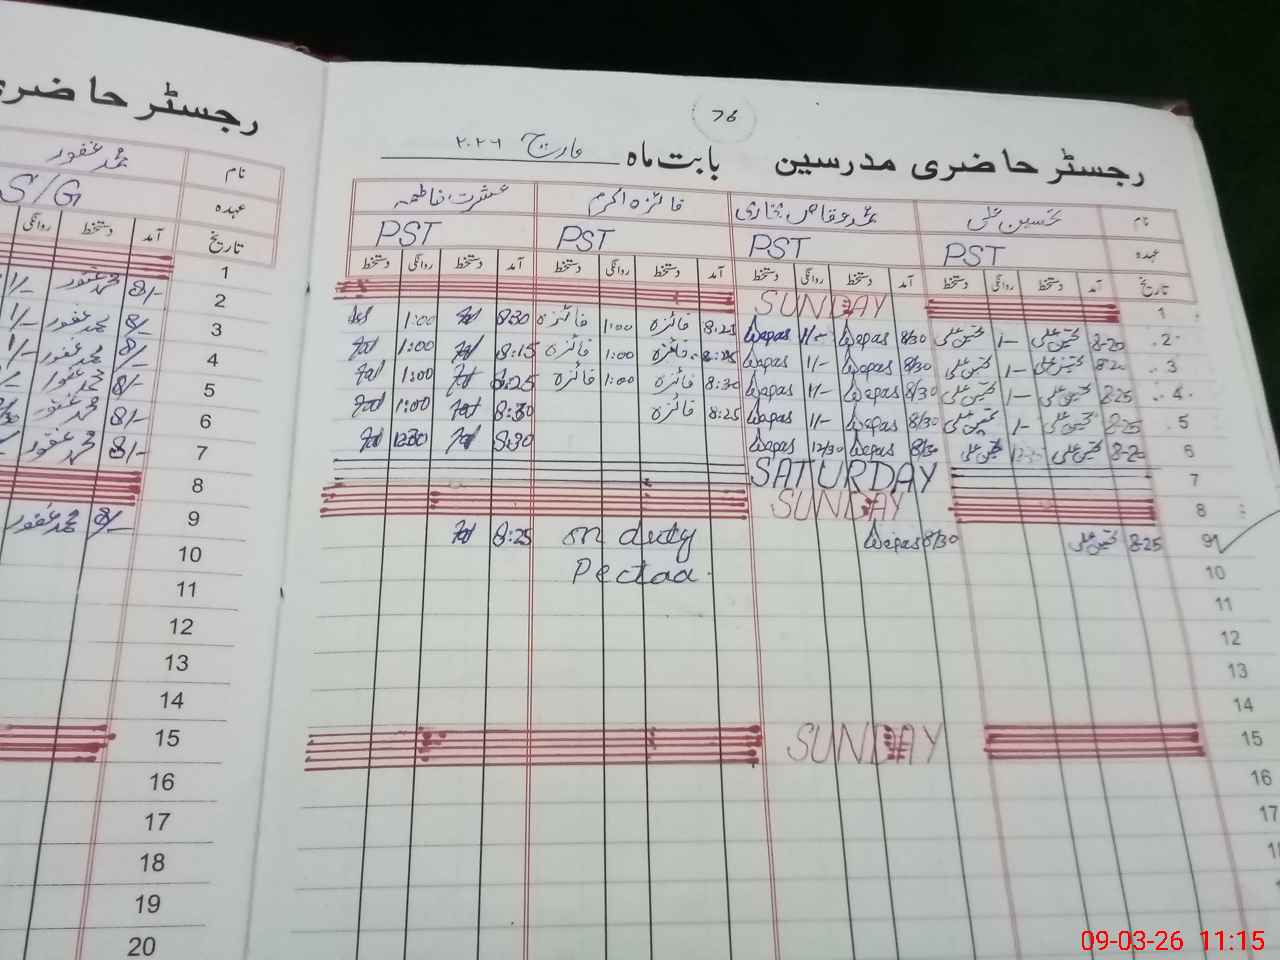 رجسٹر حاضری
نام محمد غفور
عہدہ S/G
تاریخ آمد دستخط روانگی
1
2 8/- محمد غفور 1/-
3 8/- محمد غفور 1/-
4 8/- محمد غفور 1/-
5 8/- محمد غفور
6 8/- محمد غفور
7 8/- محمد غفور
8
9 8/- محمد غفور
10
11
12
13
14
15
16
17
18
19
20
76
رجسٹر حاضری مدرسین بابت ماہ مارچ ۲۰۲۶
نام تحسین علی بخاری فائزہ اکرم عشرت فاطمہ
عہدہ PST PST PST PST
تاریخ آمد دستخط روانگی دستخط آمد دستخط روانگی دستخط آمد دستخط روانگی دستخط آمد دستخط روانگی دستخط
1 SUNDAY
2 8-20 تحسین علی 1- تحسین علی 8/30 Waqas 1/- Waqas 8:25 فائزہ 1:00 فائزہ 8:30 1:00
3 8-20 تحسین علی 1- تحسین علی 8/30 Waqas 1/- Waqas فائزہ 1:00 فائزہ 8:15 1:00
4 8-25 تحسین علی 1- تحسین علی 8/30 Waqas 1/- Waqas 8:30 فائزہ 1:00 فائزہ 8:25 1:00
5 8-25 تحسین علی 1- تحسین علی 8/30 Waqas 1/- Waqas 8:25 فائزہ 8:30 1:00
6 8-20 تحسین علی تحسین علی 8/30 Waqas 12/30 Waqas 8:30 12:30
7 SATURDAY
8 SUNDAY
9 8-25 تحسین علی 8/30 Waqas on duty 8:25
10 Pectaa
11
12
13
14
15 SUNDAY
16
17
09-03-26 11:15